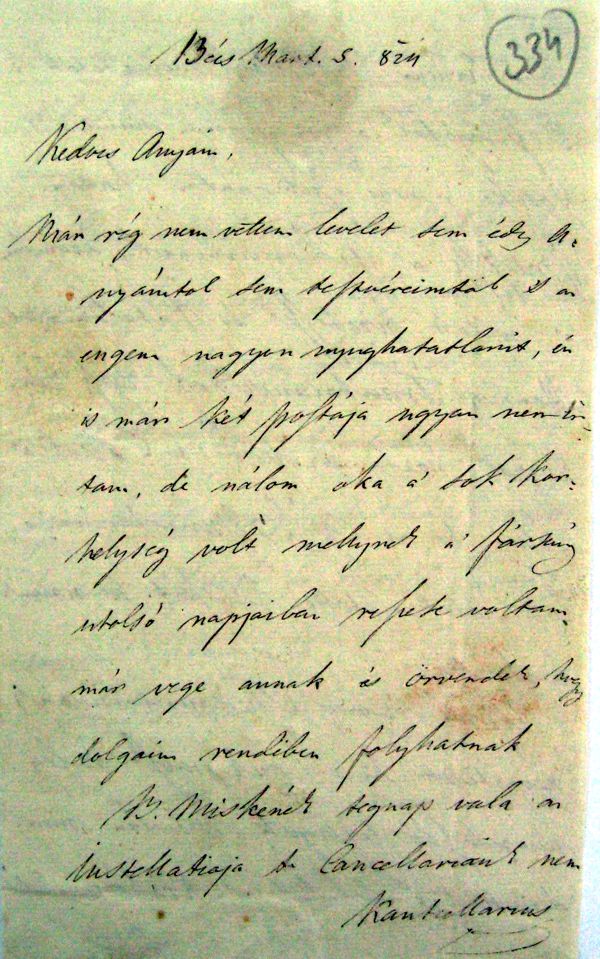 334
Bécs Mart. 5. 824
Kedves Anyám,
Már rég nem vettem levelet sem édes A-
nyámtol sem testvéreimtöl s a
engem nagyon nyughatatlanit, én
is már két postája ugyan nem ir-
tam, de nálom oka a' sok Kor-
helység volt mellynek a' fársáng
utolsó napjaiban része voltam
már vege annak és örvendek, hogy
dolgaim rendiben folyhatnak
B. Miskének tegnap vala a
Installatioja de Cancellariánk nem
Kantzellarius